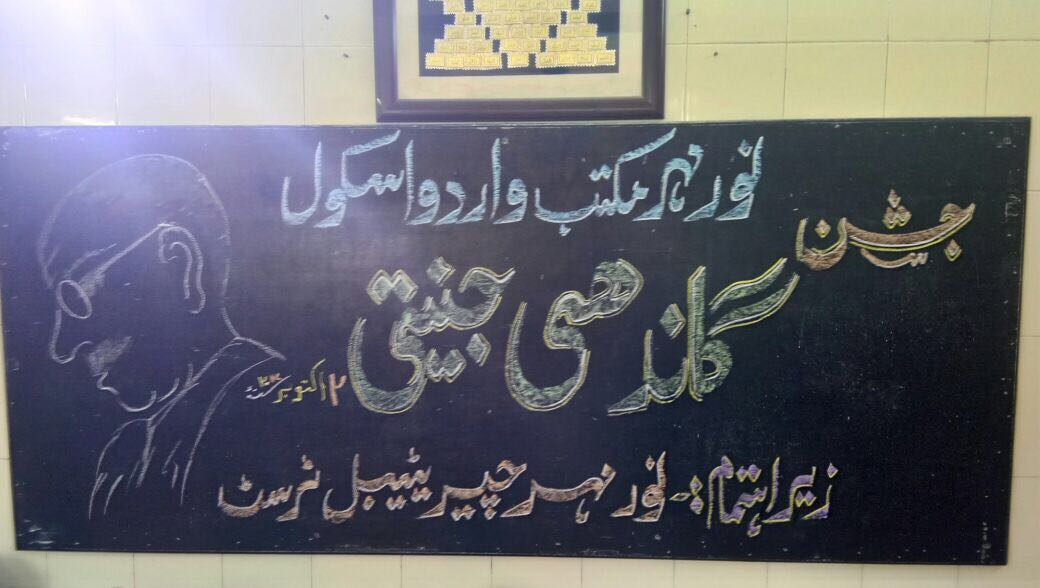 نور نہر مکتب و اردو اسکول
جشن
گاندھی جینتی
۲ اکتوبر ۲۳ء
زیر اہتمام:۔ نور نہر چیریٹیبل ٹرسٹ